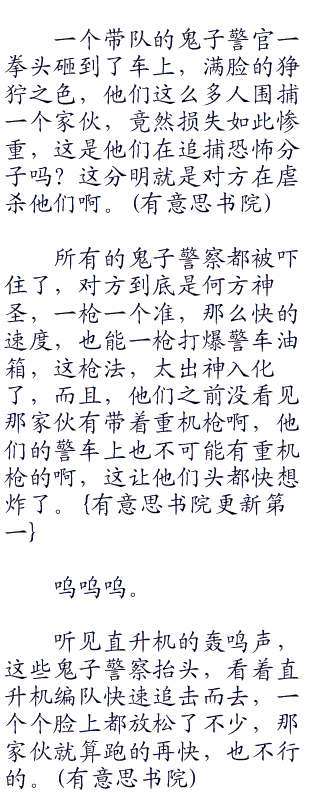 一个带队的鬼子警官一
拳头砸到了车上，满脸的狰
狞之色，他们这么多人围捕
一个家伙，竟然损失如此惨
重，这是他们在追捕恐怖分
子吗？这分明就是对方在虐
杀他们啊。(有意思书院)
所有的鬼子警察都被吓
住了，对方到底是何方神
圣，一枪一个准，那么快的
速度，也能一枪打爆警车油
箱，这枪法，太出神入化
了，而且，他们之前没看见
那家伙有带着重机枪啊，他
们的警车上也不可能有重机
枪的啊，这让他们头都快想
炸了。{有意思书院更新第
一}
呜呜呜。
听见直升机的轰鸣声，
这些鬼子警察抬头，看着直
升机编队快速追击而去，一
个个脸上都放松了不少，那
家伙就算跑的再快，也不行
的。(有意思书院)